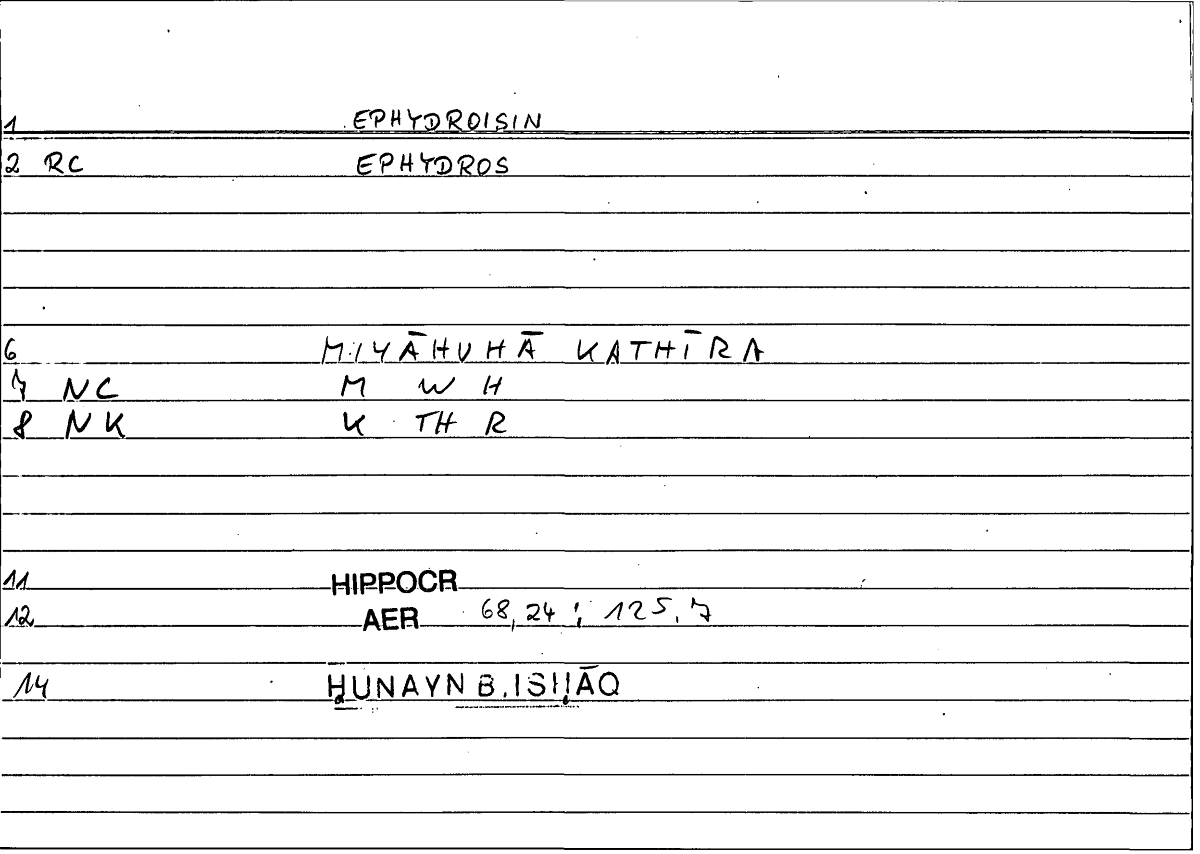 1 EPHYDROISIN
2 RC EPHYDROS
6 MIYĀHUHĀ KATHĪRA
7 NC M W H
8 NK K TH R
11 HIPPOCR
12 AER 68,24 ; 125,7
14 ḤUNAYN B. ISḤĀQ